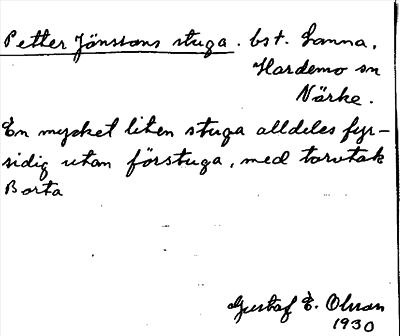 Petter Jönssons stuga. bst. Lanna,
Hardemo sn
Närke.
En mycket liten stuga alldeles fyr-
sidig utan förstuga, med torvtak
Borta
Gustaf E. Olsson
1930